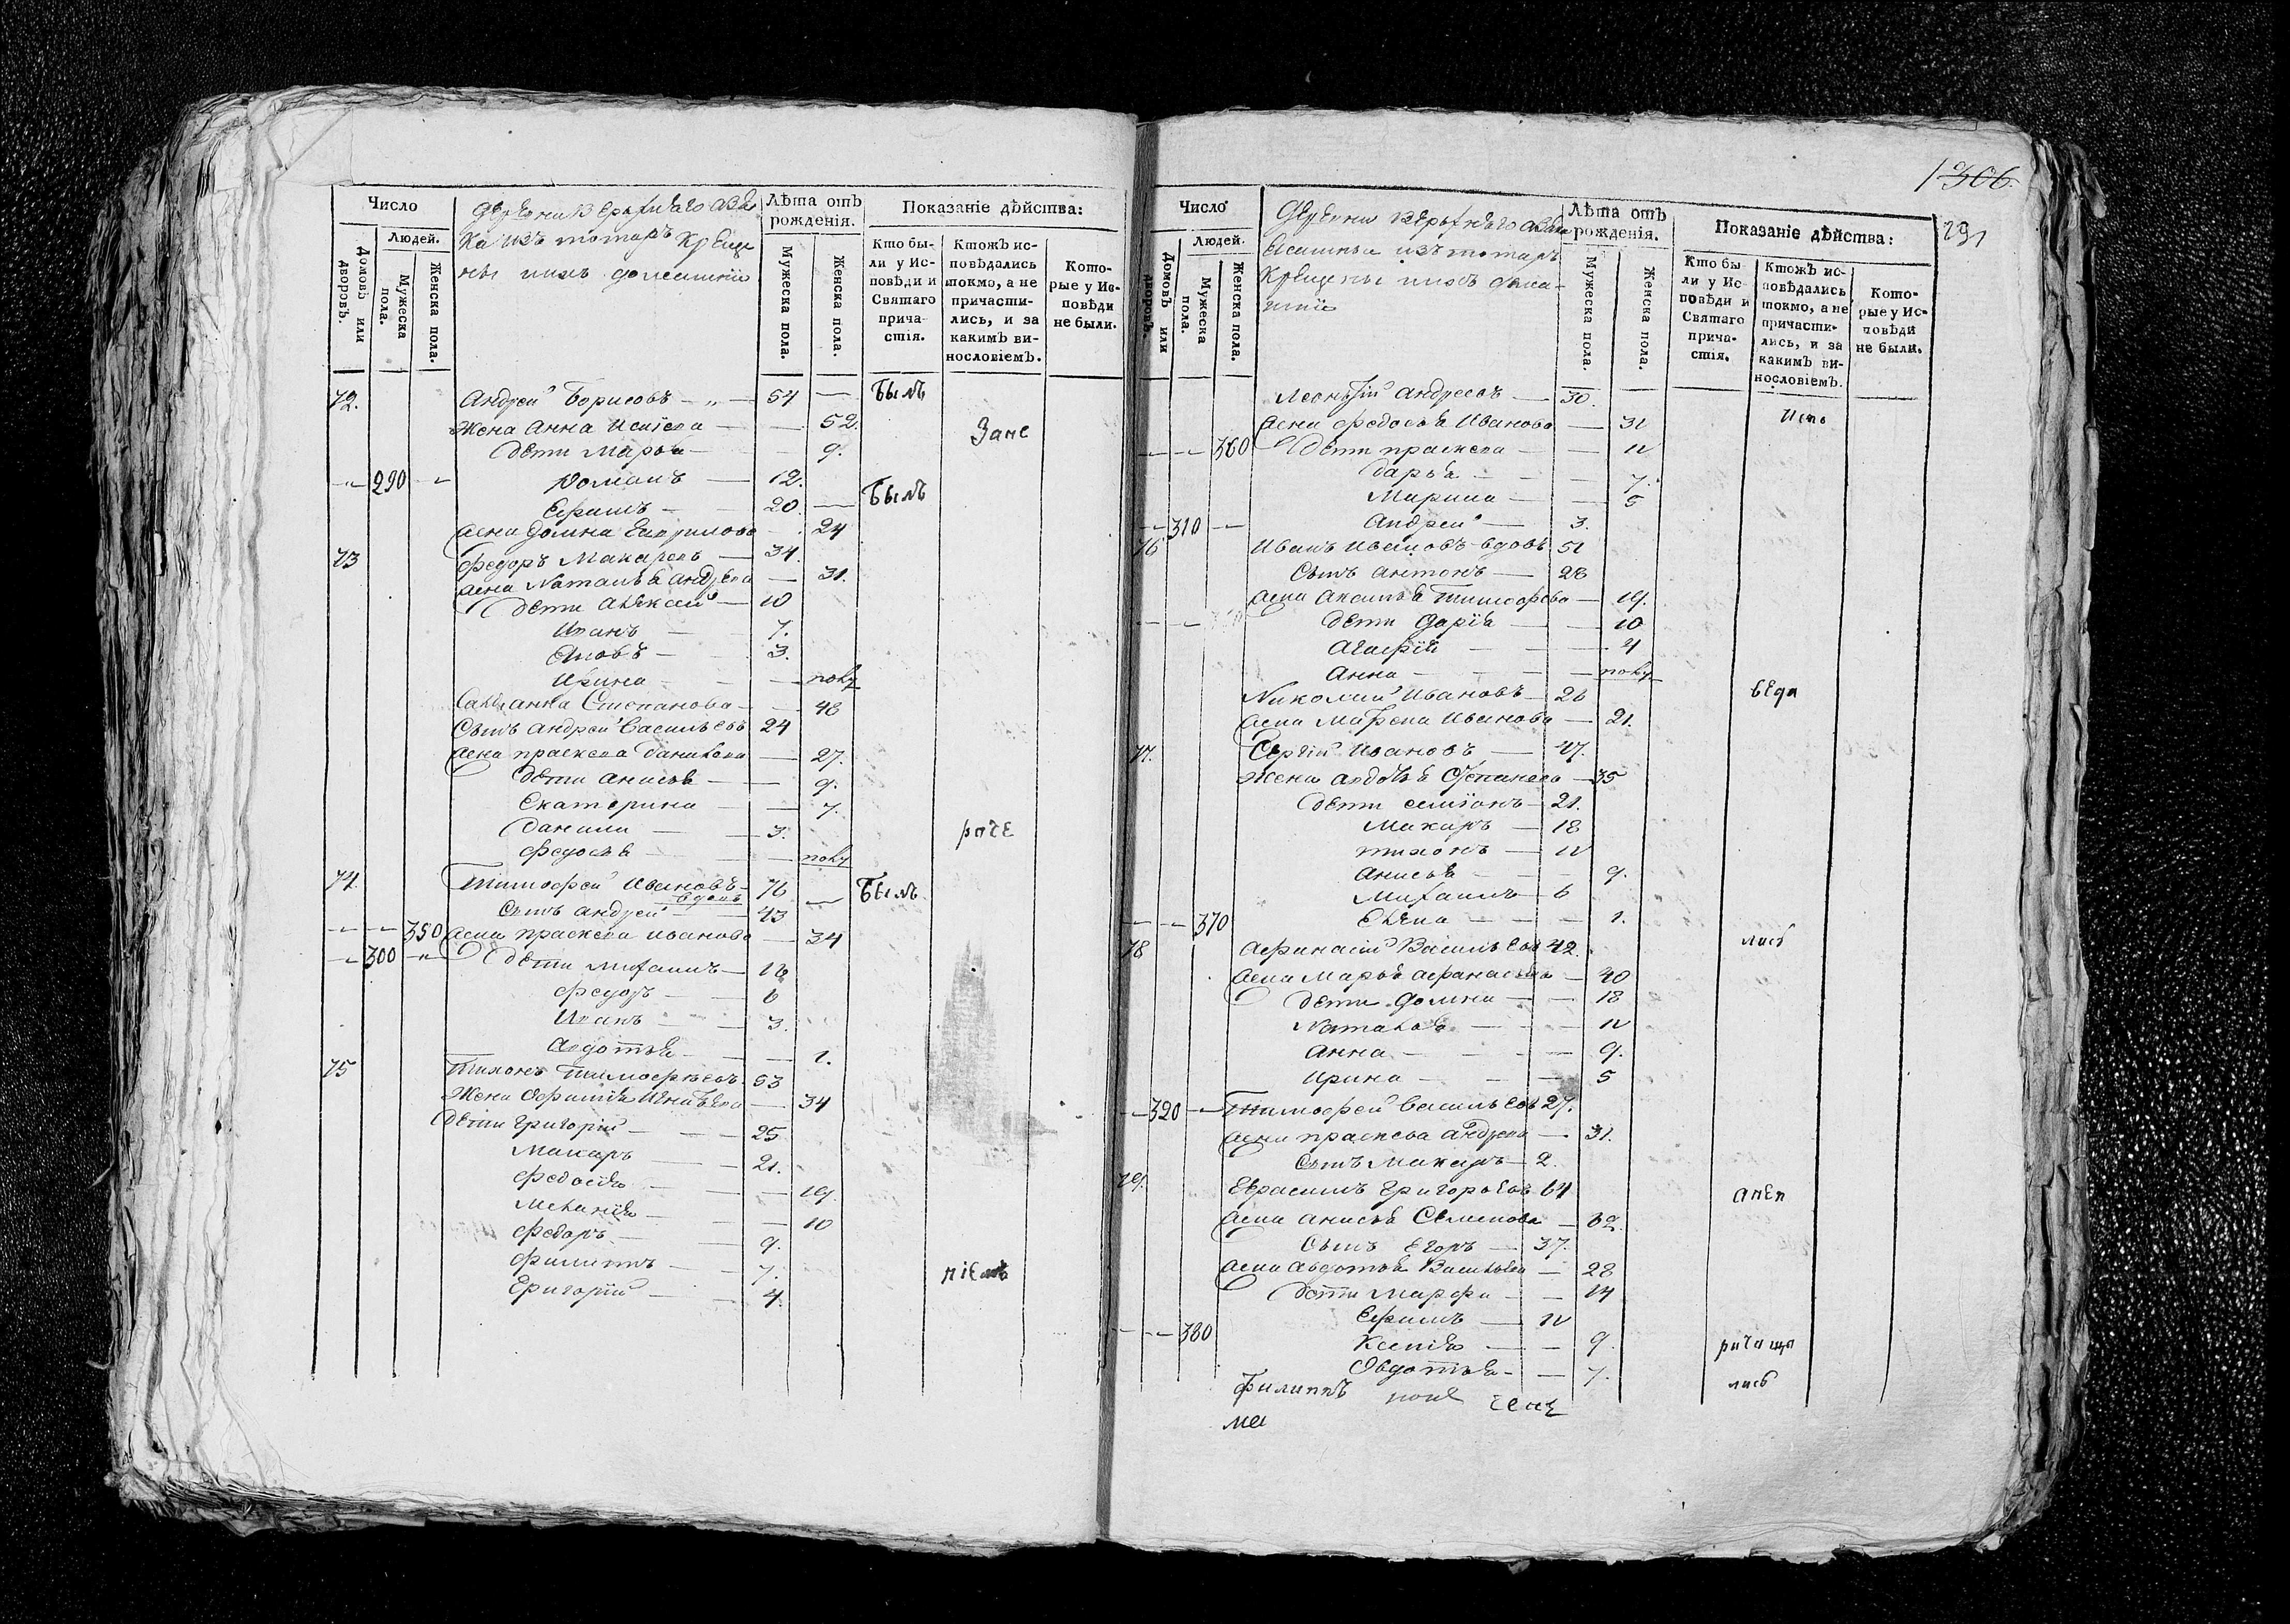 Число
Людей.
Домовъ или дворовъ.
Мужеска пола.
Женска пола.
Деревни Верхняго
из татаръ Креще
ны и ихъ домашнии
Лѣта отъ рожденія.
Мужеска пола.
Женска пола.
Показаніе дѣйства:
Кто были у Исповѣди и Святаго причастія.
Ктожъ исповѣдались токмо, а не причастились, и за какимъ винословіемъ.
Которые у Исповѣди не были.
72. Андрей Борисовъ — „ — 54 — былъ
Жена Анна — — 52. Зане
Дети Марья — 9.
290 Романъ — 12.
Ефимъ — 20. — былъ
жена Домна Гаврилова — 24
73 Федоръ Макаровъ — 34.
жена Наталья Андреева — 31.
Дети Алексей — 10
Иванъ — 7.
Яковъ — 3.
Ирина — — полу
Анна Степанова — — 48
Сынъ Андрей Васильевъ 24
жена Праскева Данилова — 27.
Дети Анисья — — 9.
Екатерина — — 7.
Данила — — 3. роче
Федосья — — полу
74. Тимофей Ивановъ — 76 — былъ
вдовъ
Сынъ Андрей — — 43
350 жена Праскева Иванова — 34
300 Дети Михаилъ —
Федоръ — — 6
Иванъ — — 3.
Авдотья — — 1.
75 Тихонъ Тимофеевъ 53
Жена — 34
Дети Григорій — — 25.
Макаръ — — 21.
Федосья — — 19.
Меланія — — 10
Федоръ — — 9.
Филиппъ — — 7.
Григорій — — 4.
1306.
291
Число
Людей.
Домовъ или дворовъ.
Мужеска пола.
Женска пола.
Деревни Верхняго
изъ татаръ
Крещены и ихъ
Лѣта отъ рожденія.
Мужеска пола.
Женска пола.
Показаніе дѣйства:
Кто были у Исповѣди и Святаго причастія.
Ктожъ исповѣдались токмо, а не причастились, и за какимъ винословіемъ.
Которые у Исповѣди не были.
Леонтій Андреевъ — 30.
жена Федосья Иванова — 31 Испо
360 Дети Праскева — —
Дарья — — 7.
Марина — — 5
310 Андрей — 3.
76 Иванъ Ивановъ вдовъ 51
Сынъ Антонъ — 28
жена Аксинья Тимофеева — 19.
Дети Дарія — — 10
— 4
Анна — — полу
Николай Ивановъ — 26 веда
жена Марфа Иванова — 21.
77. Сергій Ивановъ — 47.
Жена Авдотья Степанова — 35
Дети Симіонъ — 21.
Макаръ — 18
Тихонъ —
Анисья — — 9.
Михаилъ — 6
370 Елена — — 1.
78 Афанасій Васильевъ 42. лись
жена Марья Афанасьева — 40
Дети Домна — — 18
Наталья — —
Анна — — 9.
Ирина — — 5
320 Тимофей Васильевъ 27.
жена Праскева Андреева — 31.
Сынъ Макаръ — 2.
79. Герасимъ Григорьевъ 64
жена Анисья Семенова — 62.
Сынъ Егоръ — 37.
жена Авдотья Васильева — 28
Дети Марфа — — 14
Ефимъ —
380 Ксенія — — 9. ричаща
Овдотья — — 7. лись
Филиппъ